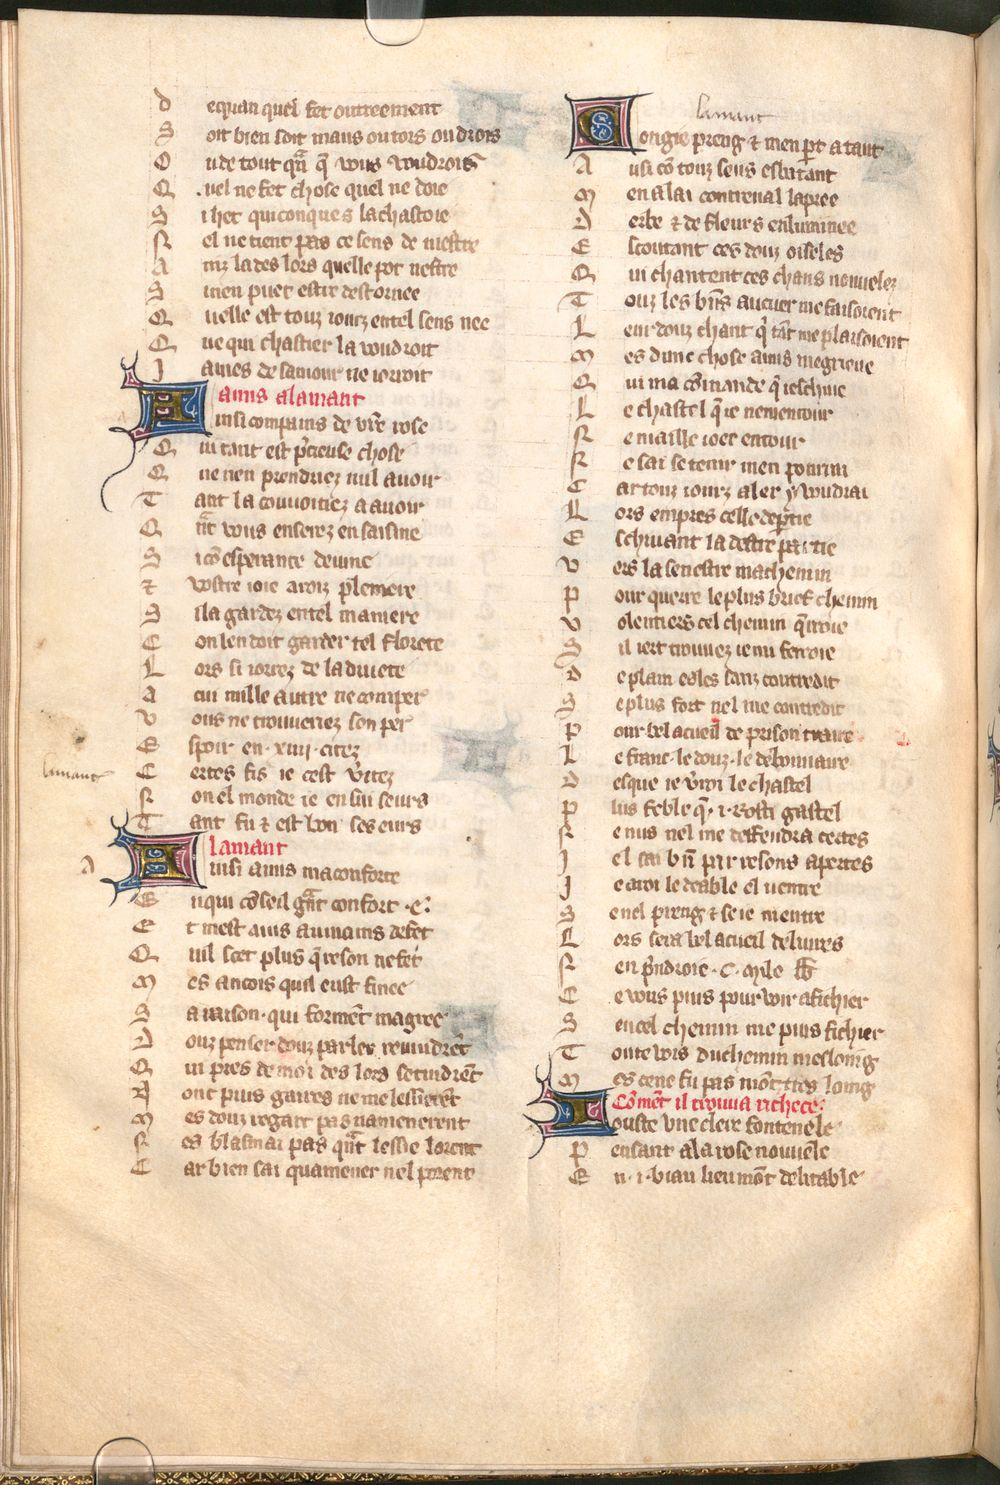 D equan quel fet outreement
S oit bien soit maus ou tors ou drois
O u de tout qñt q̃ vous voudrois
Q uel ne fet chose quel ne doie
S i het quiconques la chastoie
N el ne tient pas ce sens de mestre
A inz la des lors quelle pot nestre
S i nen puet estre destornee
Q uelle est touz iourz en tel sens nee
Q ue qui chastier la voudroit
J ames de samour ne iorroit
amis a lamant
A insi compains de vr̃e rose
Q ui tant est p̃cieuse chose
Q ue nen prendriez nul auoir
T ant la couuoitiez a auoir
Q ñt vous en serez en saisine
S i cõ esperance deuine
⁊ vostre ioie aroiz pleniere
S i la gardez en tel maniere
C on len doit garder tel florete
L ors si iorrez de lamiete
A cui nulle autre ne comper
V ous ne trouueriez son per
E spoir en .xiiii. citez
lamant
C ertes fis ie cest v̾itez
N on el monde ie en sui seurs
T ant fu ⁊ est bon ses eurs
lamant
A
A insi amis ma conforte
E n qui cõseil gñt confort .e.
E t mest auis au mains de fet
Q uil scet plus q̃ reson ne fet
M es ancois quil eust finee
S a raison qui formẽt magree
D ouz penser douz parler reuindrẽt
Q ui pres de moi des lors se tindrẽt
Q onc puis gaires ne me lessierẽt
M es douz regart pas namenerent
N es blasmai pas qñt lessie lorent
C ar bien sai quamener nel porent
lamant
C ongie preng ⁊ men p̱t atant
A usi cõ touz seus esbatant
M en alai contreual la pree
D erbe ⁊ de fleurs enluminee
E scoutant ces douz oiseles
Q ui chantent ces chans nouuelez
T ouz les bñs au cuer me faisoient
L eur douz chant q̃ tãt me plaisoient
M es dune chose amis megrieue
Q ui ma cõmande q̃ ieschiue
L e chastel q̃ ie nen entour
N e naille ioer entour
N e sai se tenir men pourrai
C ar touz iourz aler y voudrai
L ors empres celle dep̱tie
E schiuant la destre partie
V ers la senestre machemin
P our querre le plus brief chemin
V olentiers cel chemin q̃rroie
S il iert trouuez ie mi ferroie
D e plain esles sanz contredit
S e plus fort nel me contredit
P our bel acueil de prison traire
L e franc le douz le debonnaire
D esque ie v̾roi le chastel
P lus feble q̃ .i. rosti gastel
N e nus nel me deffendra certes
J el sai bñ par resons apertes
J e aroi le deable el uentre
S e nel preng ⁊ se ie nentre
L ors sera bel acueil deliures
N en p̃ndroie .C. mile lb
C e vous puis pour voir afichier
S en cel chemin me puis fichier
T oute vois du chemin mesloing
M es ce ne fu pas mõt tres loing
Cõmẽt il trouua richece.
J ouste vne clere fontenele
P ensant a la rose nouuele
E n .i. biau lieu mõt delitable